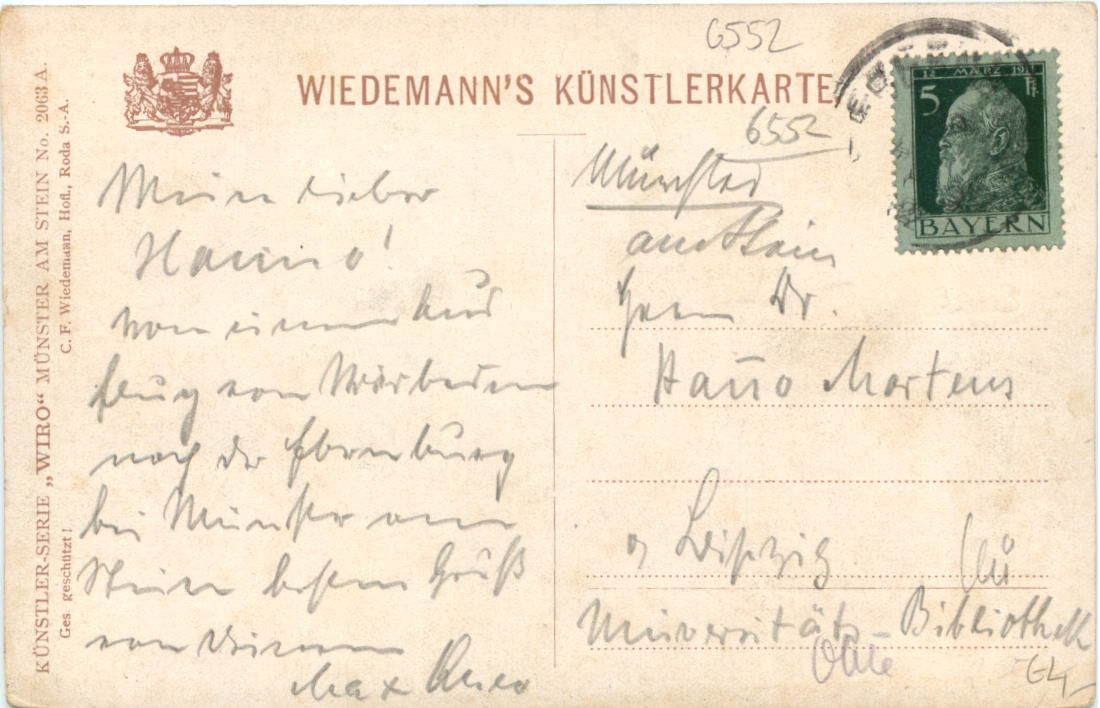 6552
WIEDEMANN'S KÜNSTLERKARTE
12 MÄRZ 1911
5 Pf.
BAYERN
6552
KÜNSTLER-SERIE „WIRO“ MÜNSTER AM STEIN No. 2063 A.
Ges. geschützt! C. F. Wiedemann, Hofl., Roda S.-A.
Mein lieber
Hanno!
von einem Aus
flug von Wiesbaden
nach der Ebernburg
bei Münster am
Stein besten Gruß
von Deinem
Max
Münster
am Stein
Herrn Dr.
Hanno Martens
Leipzig
Universitäts-Bibliothek